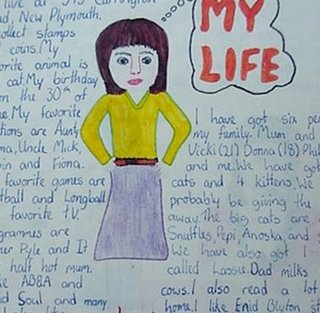 MY
LIFE
New Plymouth.
collect stamps
coins. My
favourite animal is
cat. My birthday
on the 30th of
My favorite
are Aunty
Uncle Mick,
and Fiona.
favorite games are
and Longball
favorite t.v.
programmes are
Pyle and It
half hot mum.
ABBA and
Soul and many
I have got six
my family. Mum and
Vicki (21) Donna (18)
and me. We have got
cats and 4 kittens. We
probably be giving the
away. The big cats are
Snuffles, Pepi, Anoska, and
We have also got
called Lassie. Dad milks
cows. I also read a lot
home. I like Enid Blyton